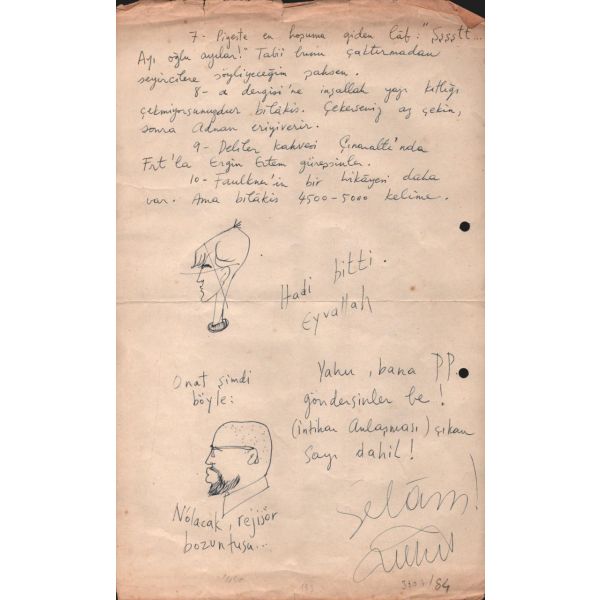 7- Piyeste en hoşuma giden lâf: "Şşşştt...
Ayı oğlu ayılar!" Tabiî bunu çaktırmadan
seyircilere söyliyeceğim şahsen.
8- a dergisi'ne inşallah yazı kıtlığı
çekmiyorsunuzdur bilâkis. Çekerseniz az çekin,
sonra Adnan eriyiverir.
9- Deliler kahvesi Çınaraltı'nda
Fırt'la Ergin Ertem güreşsinler.
10- Faulkner'in bir hikâyesi daha
var. Ama bilâkis 4500-5000 kelime.
Hadi bitti.
Eyvallah
Onat şimdi
böyle:
Yahu, bana PP.
göndersinler be!
(intihar Anlaşması) çıkan
Sayı dahil!
Nolacak, rejisör
bozuntusu...
Selâm!
/84